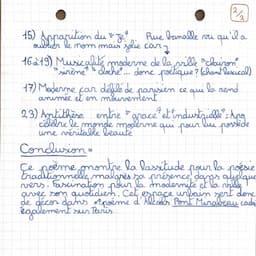 2/2
15) Apparition du "Je" Rue banalle vu qu'il a
oublier le nom mais jolie car
16 à 19) Musicalité moderne de la ville "clairon"
"sirène" "cloche"... donc poétique? (chant lexical)
17) Moderne car défilé de parisien ce qui la rend
animée et en mouvement
23) Antithèse entre "grâce" et "industrielle": Apo
célèbre le monde moderne qui pour lui possède
une véritable beauté
Conclusion =
Ce poème montre la lassitude pour la poésie
traditionnelle malgrés sa présence dans quelque
vers. Fascination pour la modernité et la ville
avec son quotidien. Cet espace urbain sert donc
de décor dans poème d'Alcools Pont Mirabeau
également sur Paris